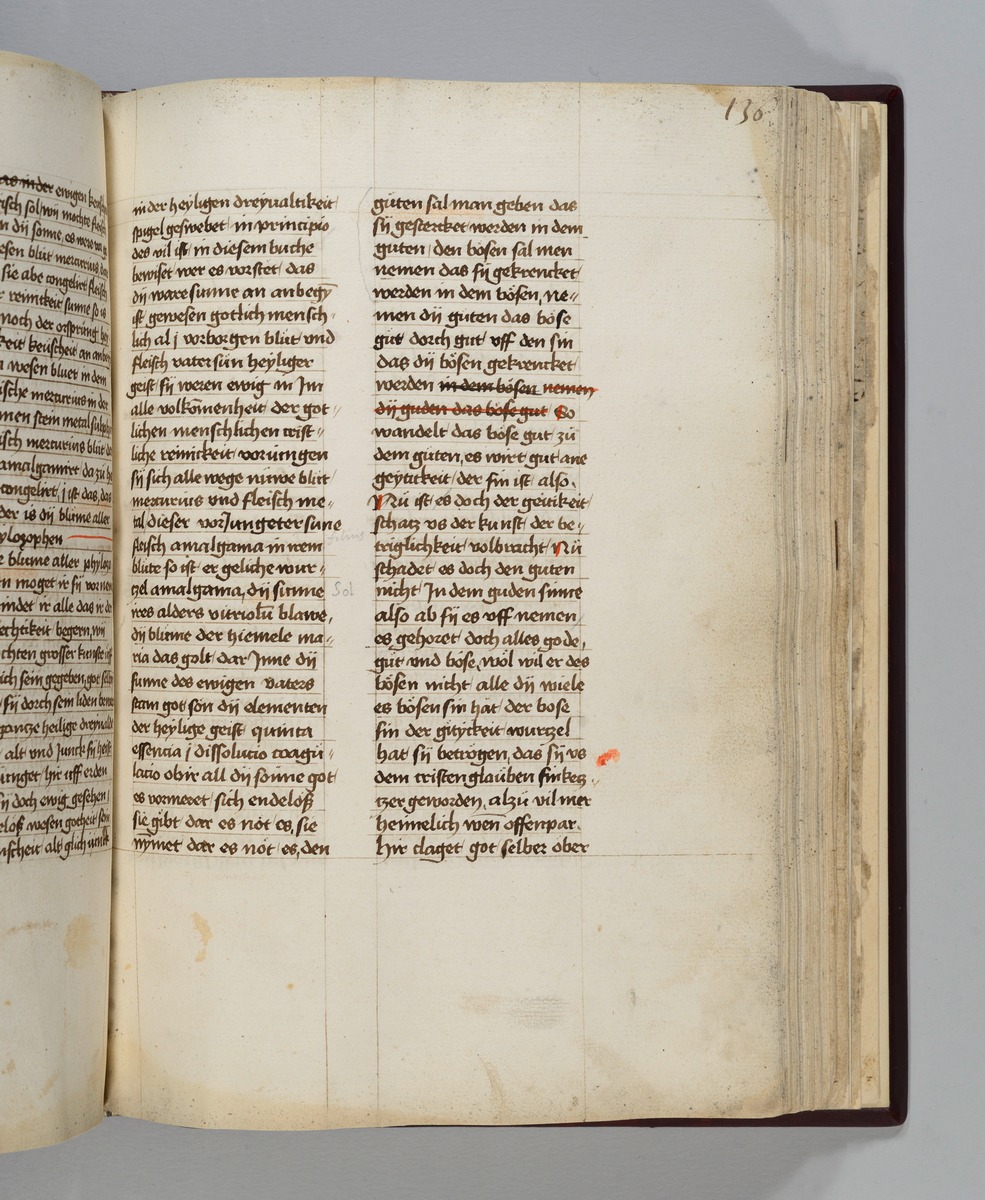 130
in der heyligen dreyualtikeit
spigel geswebet in principio
des vil ist in diesem buche
bewiset wer es vorstet das
dij ware sunne an anbegȳ
ist gewesen gotlich mensch„
lich al j vorborgen blut vnd
fleisch vater sun heyliger
geist sij weren ewig in Im
alle volkōmenheit der got„
lichen menschlichen crist„
liche reinickeit vorumgen
sij sich alle wege nuwe blut
mercurius vnd fleisch me„
tal dieser vorJungeter sune
fleisch amalgama in rem
blute so ist er geliche wur„
zel amalgama, dij sunne
Sol
ires alders vitriolū blawe,
dij blume der hiemele ma„
ria das golt dar Inne dij
sunne des ewigen vaters
stam got son dij elementen
der heylige geist quinta
essencia j dissolucio coagu„
lacio obir all dij sonne got
es vormeret sich endeloß
sie gibt dar es not es, sie
nymet dar es not es, den
guten sal man geben das
sij gestercket werden in dem
guten, den bösen sal men
nemen das sij gekrencket
werden in dem bösen, ne„
men dij guten das böse
gut dorch gut vff den sin
das dij bösen gekrencket
werden in dem bösen nemen
dij guden das böse gut So
wandelt das böse gut zu
dem guten, es wirt gut ane
geytickeit, der sin ist also.
Nu ist es doch der geitikeit
schatz vs der kunst der be„
triglichkeit volbracht Nu
schadet es doch den guten
nicht In dem guden sinne
also ab sij es vff nemen
es gehoret doch alles gode,
gut vnd böse, wol wil er des
bösen nicht alle dij wiele
es bösen sin hat der bose
sin der gityckeit wurczel
hat sij betrogen, das sij vs
dem cristen glauben sin kecz„
czer geworden, alzu vil mer
heimelich wen̄ offenpar.
Hir claget got selber ober